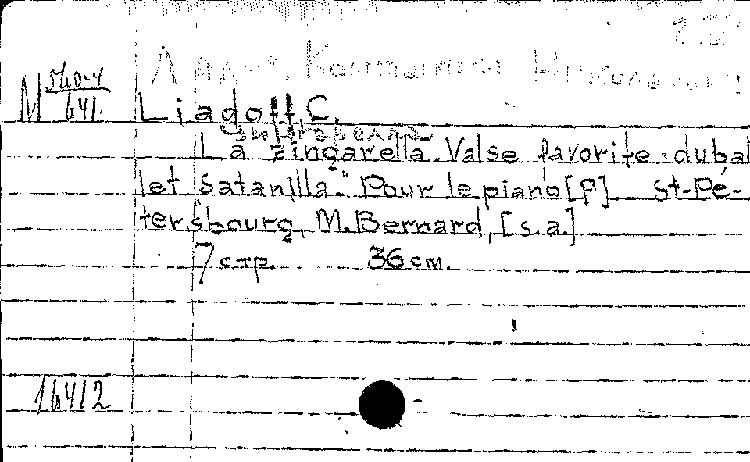 Лядов, Константин Николаевич
М 560-4/641
Liadoff, C.
La zingarella. Valse favorite du bal
let "Satanilla." Pour le piano [P]. St-Pé-
tersbourg, M. Bernard, [s.a.]
7 стр. 36 см.
16412